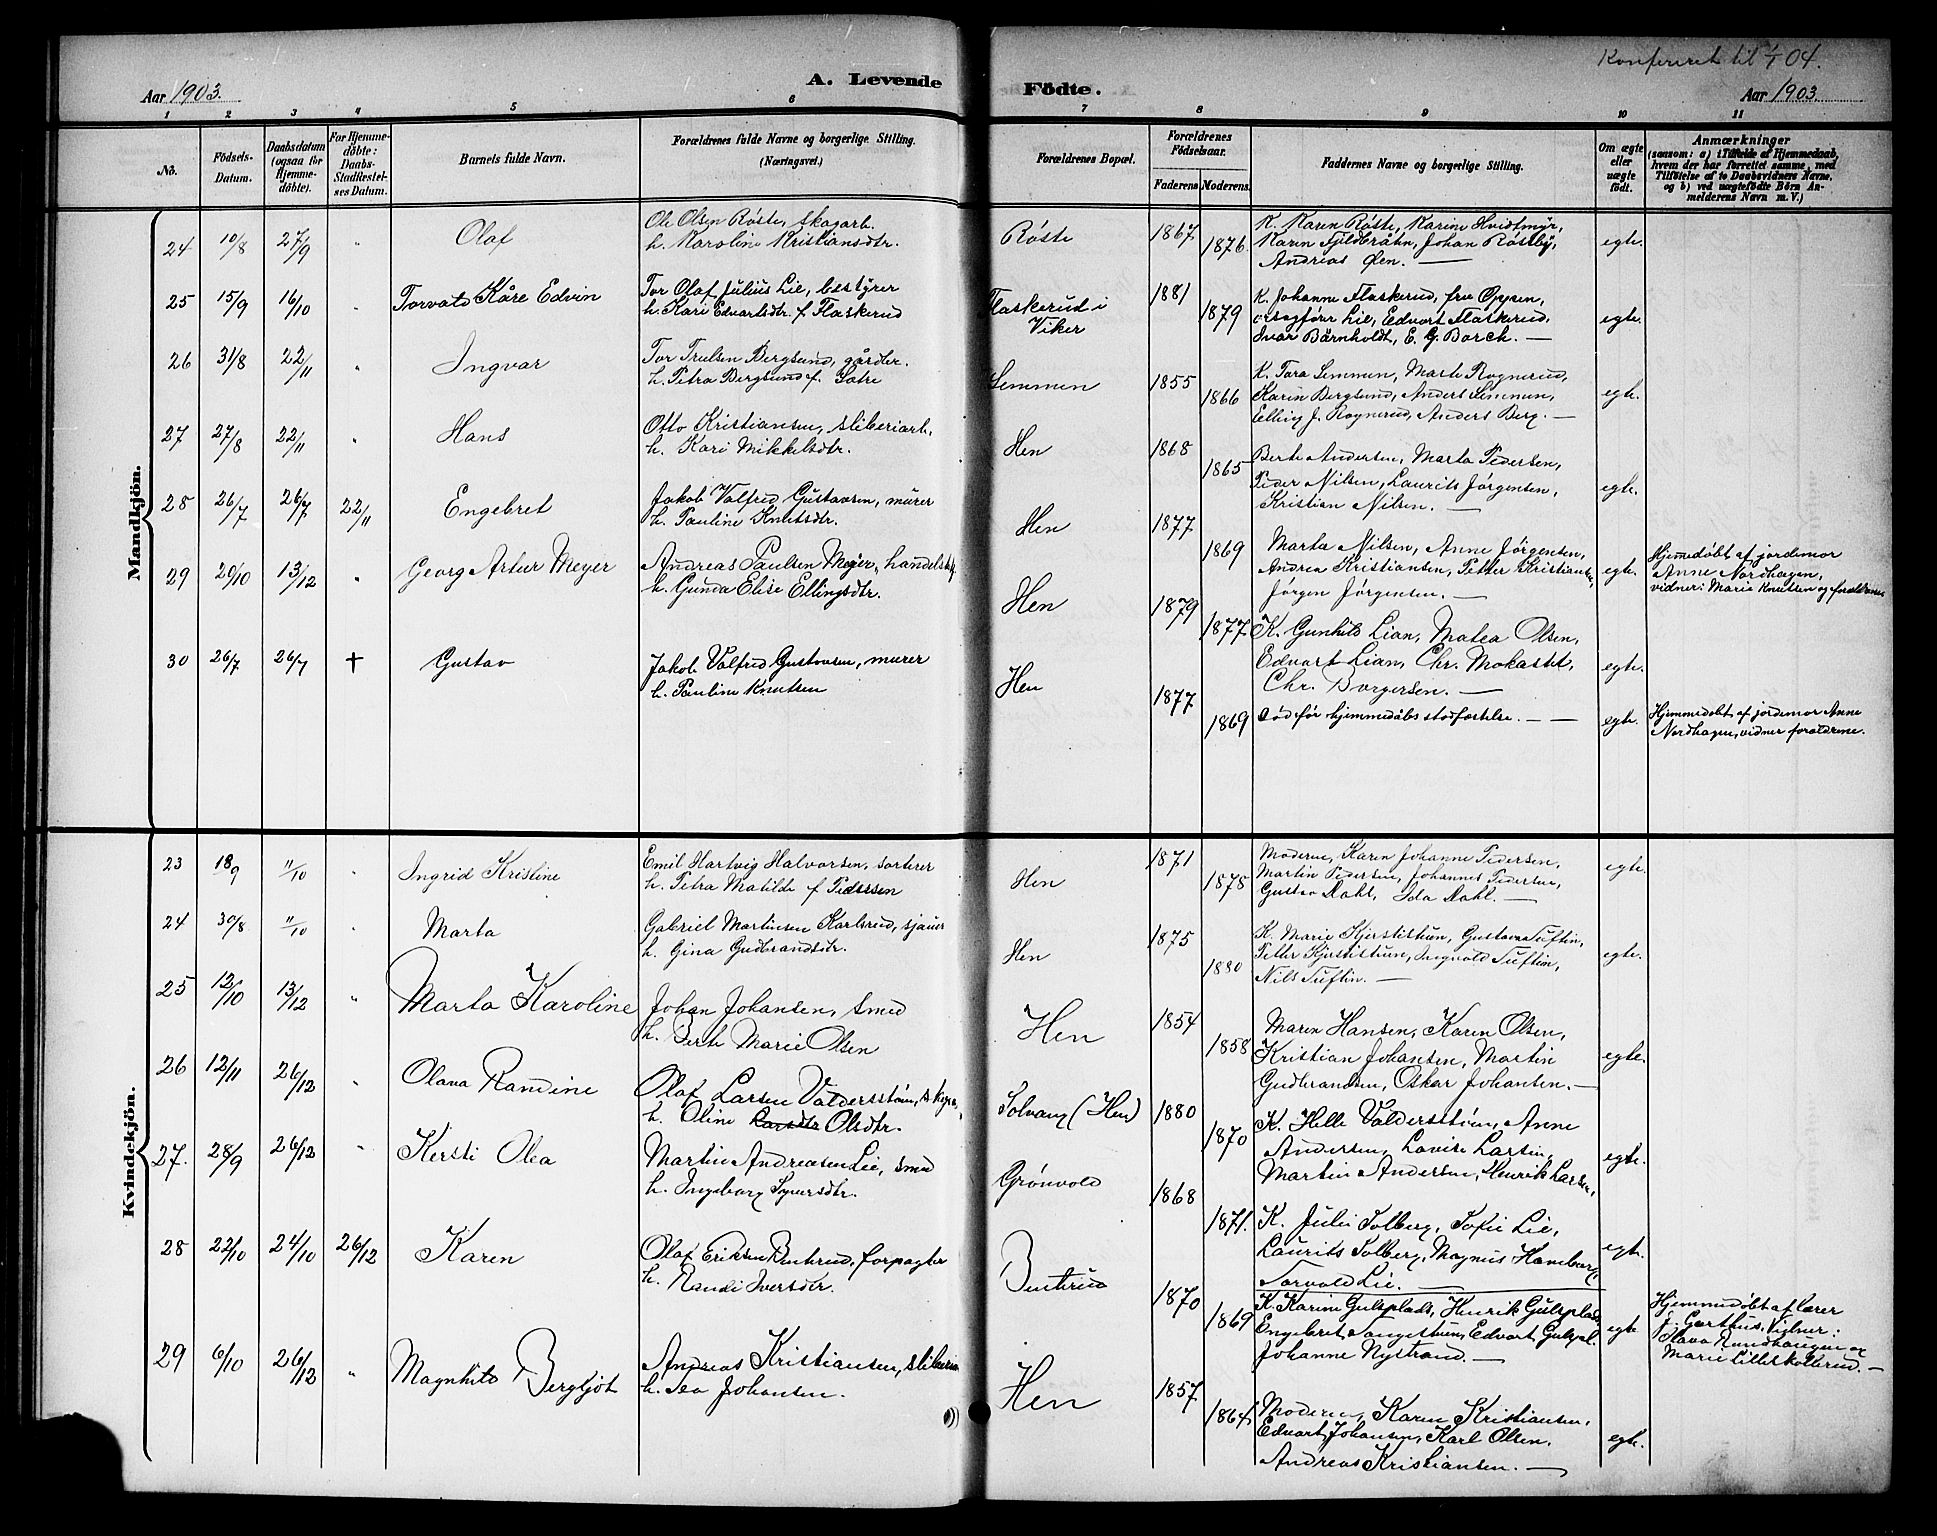 Konfereret til 1/1 04.
Aar 1903.
A. Levende
Födte.
Aar 1903
1 2 3 4 5 6 7 8 9 10 11
No.
Födsels-Datum.
Daabsdatum (ogsaa for Hjemme-döbte).
For Hjemme-döbte: Daabs-Stadfæstel-ses Datum.
Barnets fulde Navn.
Forældrenes fulde Navne og borgerlige Stilling. (Næringsvei.)
Forældrenes Bopæl.
Forældrenes Födselsaar.
Faderens. Moderens.
Faddernes Navne og borgerlige Stilling.
Om ægte eller uægte födt.
Anmærkninger
(saasom: a) i Tilfælde af Hjemmedaab, hvem der har forrettet samme, med Tilföielse af to Daabsvidners Navne, og b) ved uægtefödte Börn Anmelderens Navn m. V.)
Mandkjön.
24 10/8 27/9 " Olaf
Ole Olsen Röste, skogarb.
h. Karoline Kristiansdtr.
Röste 1867 1876
K. Karen Röste, Karine Hvidtmyr,
Karen Fjeldbråtn, Johan Röstby,
Andreas Öen. —
egte.
25 15/9 16/10 " Torvald Kåre Edvin
Tor Olaf Julius Lie, bestyrer
h. Kari Edvartsdtr. f. Flaskerud
Flaskerud i
Viker
1881 1879
K. Johanne Flaskerud, frue Oppen,
orsagförer Lie, Edvart Flaskerud,
Ivar Bärnholdt, E. G. Borch. —
egte.
26 31/8 22/11 " Ingvar
Tor Trulsen Bergsund, gårdbr.
h. Petra Bergsund f. Sætre
Semmen 1855 1866
K. Tora Semmen, Marte Rognerud,
Karin Bergsund, Anders Semmen,
Elling J. Rognerud, Anders Berg. —
egte.
27 27/8 22/11 " Hans
Otto Kristiansen, sliberiarb.
h. Kari Mikkelsdtr.
Hen 1868 1865
Berte Andersen, Marta Pedersen,
Peder Nilsen, Laurits Jørgensen,
Kristian Nilsen. —
egte.
28 26/7 26/7 22/11 Engebret
Jakob Valfrid Gustavsen, murer
h. Pauline Knutsdtr.
Hen 1877 1869
Marta Nilsen, Anne Jørgensen,
Andrea Kristiansen, Petter Kristiansen,
Jørgen Jørgensen. —
egte.
Hjemmedöbt af jordemor
Anne Nordhagen,
vidner: Marie Knutsen og forældrene
29 20/10 13/12 " Georg Artur Meyer
Andreas Paulsen Meyer, handelsbf.
h. Gunda Elise Ellingsdtr.
Hen 1879 1877
K. Gunhild Lian, Matea Olsen,
Edvart Lian, Chr. Mokastet,
Chr. Borgersen. —
egte.
30 26/7 26/7 † Gustav
Jakob Valfrid Gustavsen, murer
h. Pauline Knutsen
Hen 1877 1869
død før hjemmedåbs stadfæstelse. — —
egte.
Hjemmedöbt af jordemor Anne
Nordhagen, vidner forældrene.
Kvindekjön.
23 18/9 11/10 " Ingrid Kristine
Emil Hartvig Halvorsen, sorterer
h. Petra Matilde f. Pedersen
Hen 1871 1878
Moderen, Karen Johanne Pedersen,
Martin Pedersen, Johannes Pedersen,
Gustav Dahl, Ida Dahl. —
egte.
24 30/8 11/10 " Marta
Gabriel Martinsen Karlsrud, sjauer
h. Gina Gudbrandsdtr.
Hen 1875 1880
K. Marie Kjerstistuen, Gustava Tuftin,
Petter Kjerstistuen, Ingvald Tuftin,
Nils Tuftin. —
egte.
25 12/10 13/12 " Marta Karoline
Johan Johansen, smed
h. Berte Marie Olsen
Hen 1854 1858
Maren Hansen, Karen Olsen,
Kristian Johansen, Martin
Gudbrandsen, Oskar Johansen. —
egte.
26 12/11 26/12 " Olava Randine
Olaf Larsen Valdersstöen,
h. Oline Larsdtr Olsdtr.
Solvang (Hen) 1880 1870
K. Helle Valdersstöen, Anne
Andersen, Lovise Larsen,
Martin Andersen, Henrik Larsen,
egte.
27. 28/9 26/12 " Kersti Olea
Martin Andreasen Lie, smed
h. Ingeborg Syversdtr.
Grönvold 1868 1871.
K. Julie Solberg, Sofie Lie,
Laurits Solberg, Magnus Hamborg,
Torvald Lie. —
egte.
28 22/10 24/10 26/12 Karen
Olaf Eriksen Bentrud, forpagter
h. Randi Iversdtr.
Bentrud 1870 1869
K. Karine Gulsplads, Henrik Gulsplads,
Engebret Tangestuen, Edvart Gulspl.
Johanne Nystrand. —
egte
Hjemmedöbt af lærer
J. Garthus. Vidner:
Olava Rundhaugen og
Marie Lilleskollerud. —
29 6/10 26/12 " Magnhild Bergljót
Andreas Kristiansen, sliberiarb
h. Tea Johansen.
Hen 1857 1864
Moderen, Karen Kristiansen,
Edvart Johansen, Karl Olsen,
Andreas Kristiansen. —
egte.